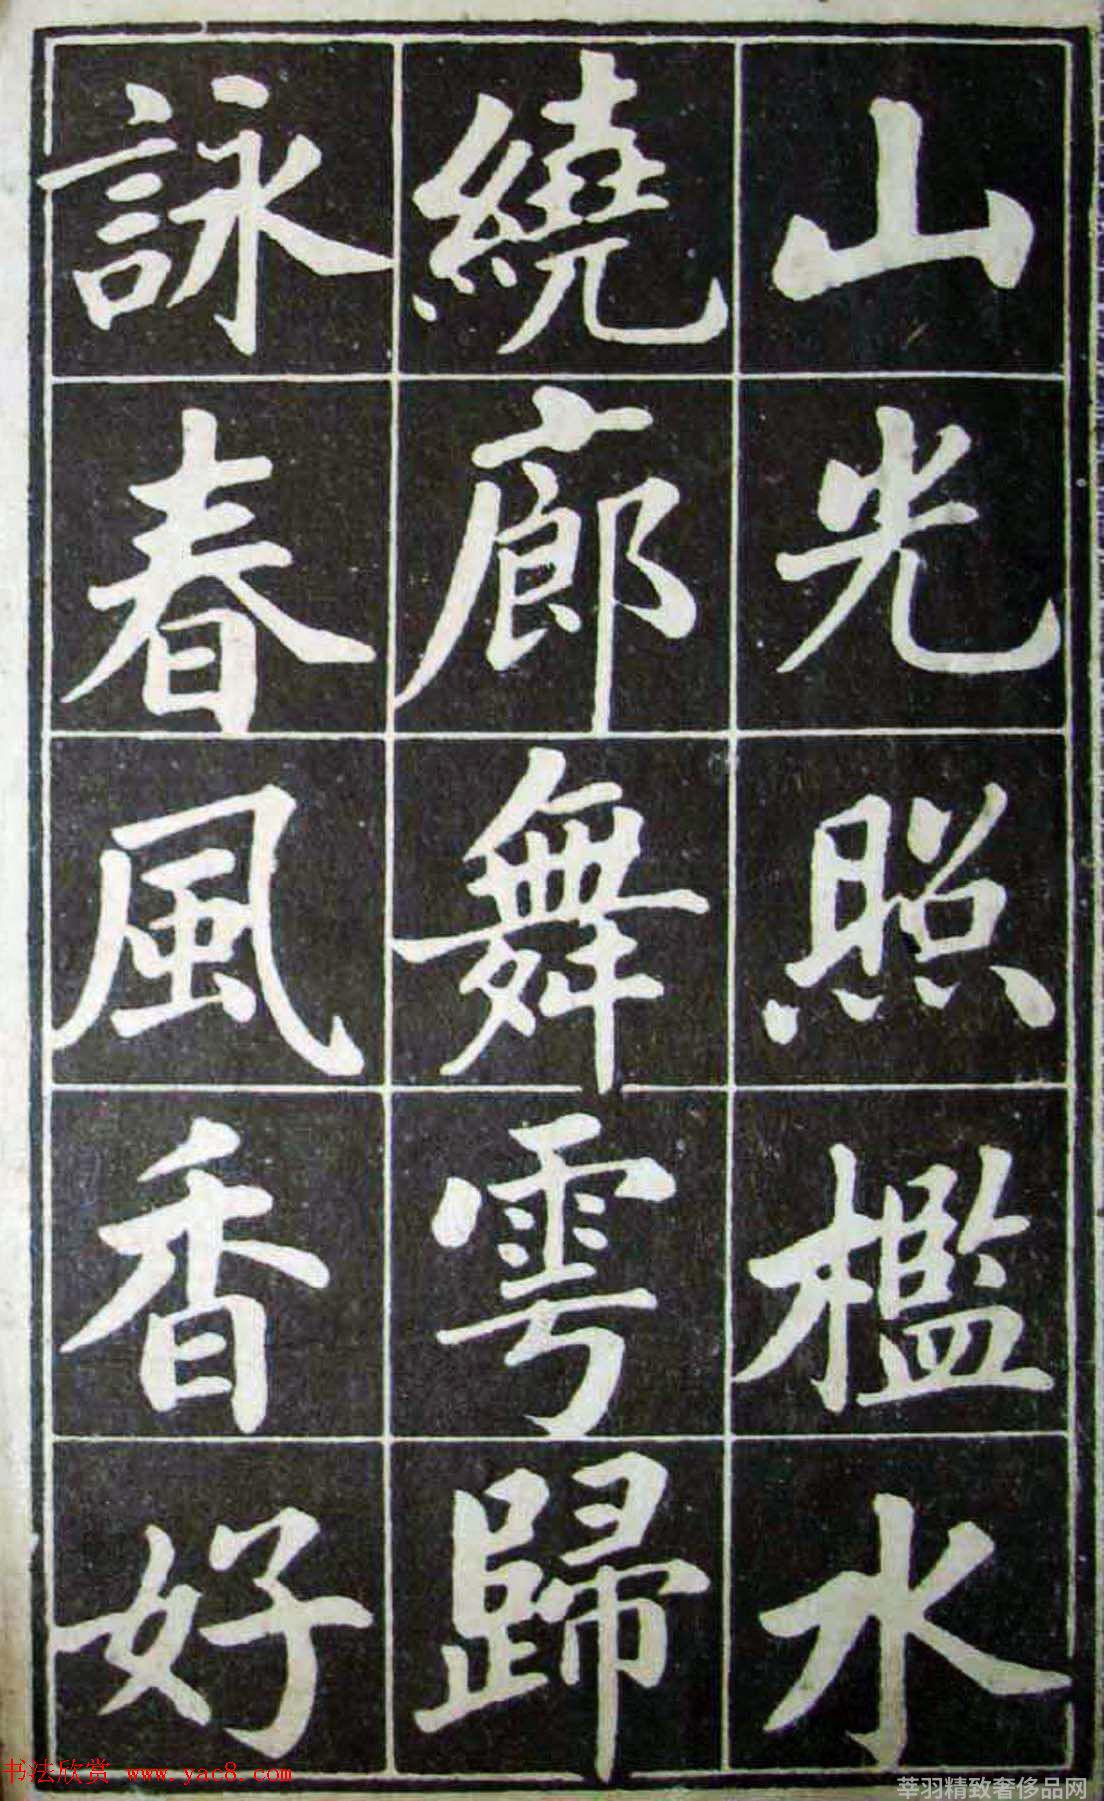 山光照檻水
繞廊舞雩歸
詠春風香好
书法欣赏 www.yac8.com
莘羽精致奢侈品网